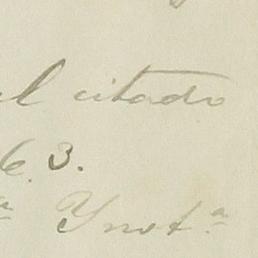 el citado
63.
Ynst.ª